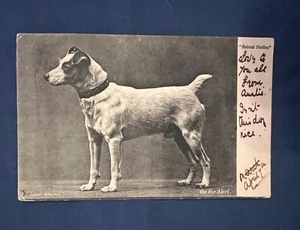 "Animal Studies"
Love to
you all
From
Auntie
Isn't
this dog
nice.
On the Alert.